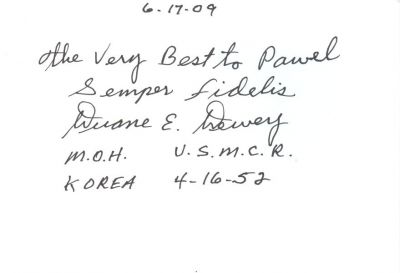 6-17-09
the Very Best to Pawel
Semper Fidelis
Duane E. Dewey
M.O.H. U.S.M.C.R.
KOREA 4-16-52